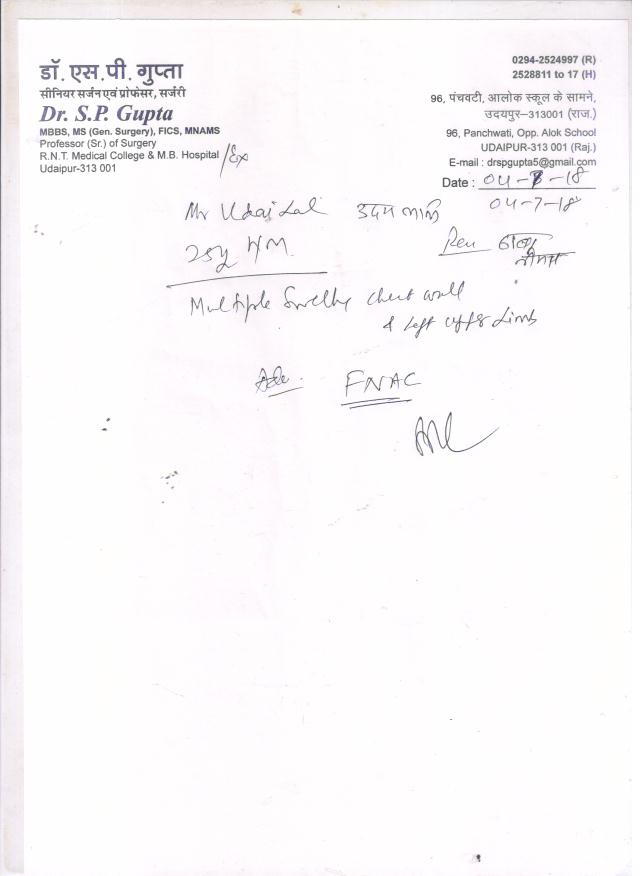 0294-2524997 (R)
2528811 to 17 (H)
डॉ. एस.पी. गुप्ता
सीनियर सर्जन एवं प्रोफेसर, सर्जरी
Dr. S.P. Gupta
MBBS, MS (Gen. Surgery), FICS, MNAMS
Professor (Sr.) of Surgery
R.N.T. Medical College & M.B. Hospital /Ex
Udaipur-313 001
96, पंचवटी, आलोक स्कूल के सामने,
उदयपुर-313001 (राज.)
96, Panchwati, Opp. Alok School
UDAIPUR-313 001 (Raj.)
E-mail : drspgupta5@gmail.com
Date : 04-7-18
04-7-18
Mr Udai Lal उदय लाल
25y HM
Multiple Swelling chest wall
& left upper Limb
Adv. FNAC